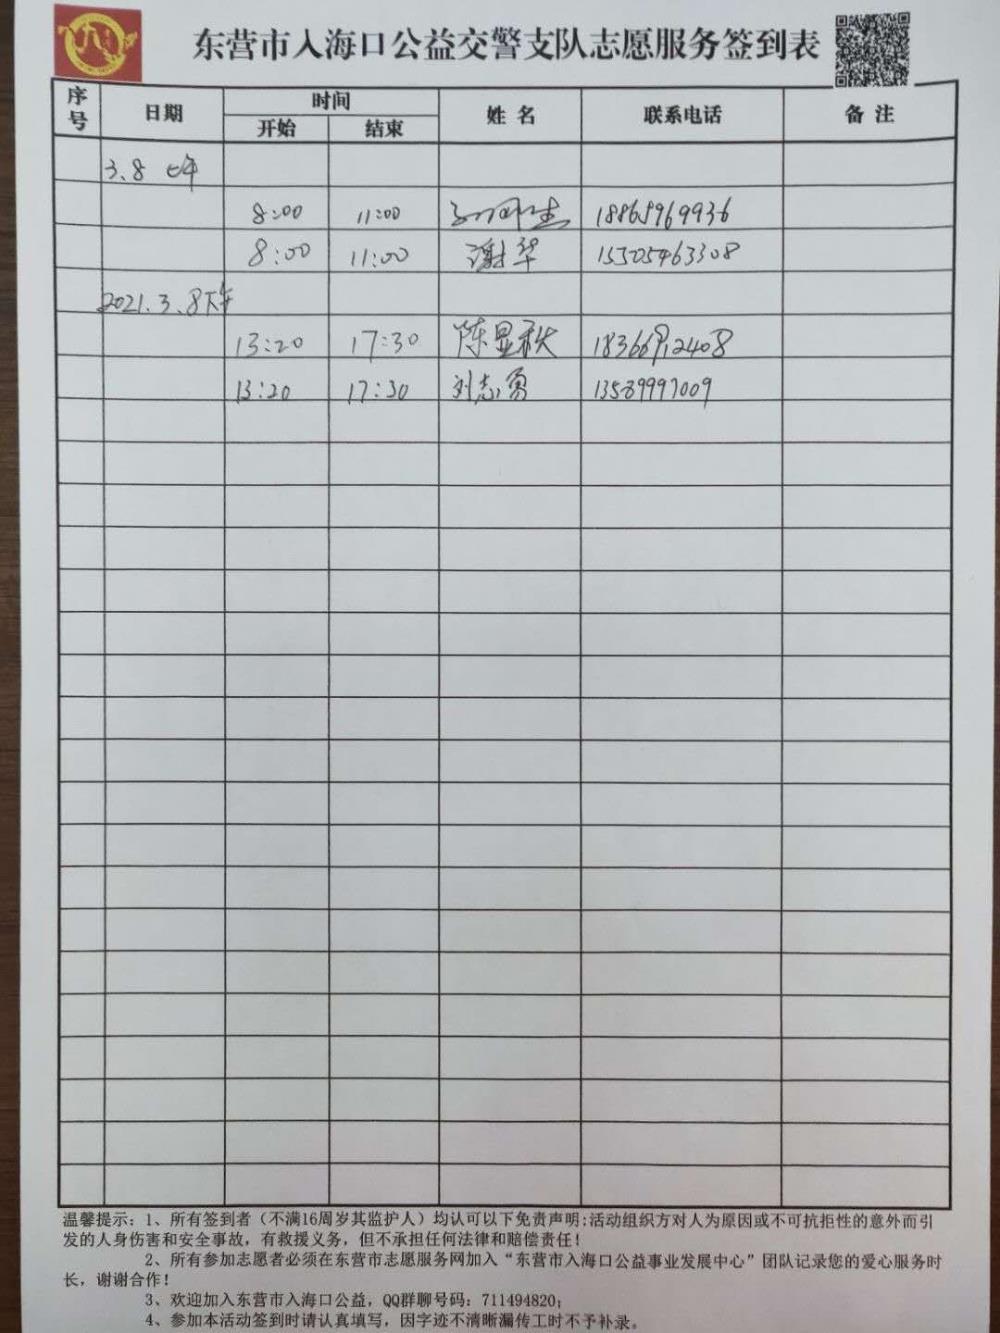 东营市入海口公益交警支队志愿服务签到表
序号 日期 时间 姓名 联系电话 备注
开始 结束
3.8 上午
8:00 11:00 18865969936
8:00 11:00 谢华 15505463308
2021.3.8下午
13:20 17:30 陈显秋 18366912408
13:20 17:30 刘志勇 13589997009
温馨提示：1、所有签到者（不满16周岁其监护人）均认可以下免责声明;活动组织方对人为原因或不可抗拒性的意外而引
发的人身伤害和安全事故，有救援义务，但不承担任何法律和赔偿责任！
2、所有参加志愿者必须在东营市志愿服务网加入“东营市入海口公益事业发展中心”团队记录您的爱心服务时
长，谢谢合作！
3、欢迎加入东营市入海口公益，QQ群聊号码：711494820；
4、参加本活动签到时请认真填写，因字迹不清晰漏传工时不予补录。